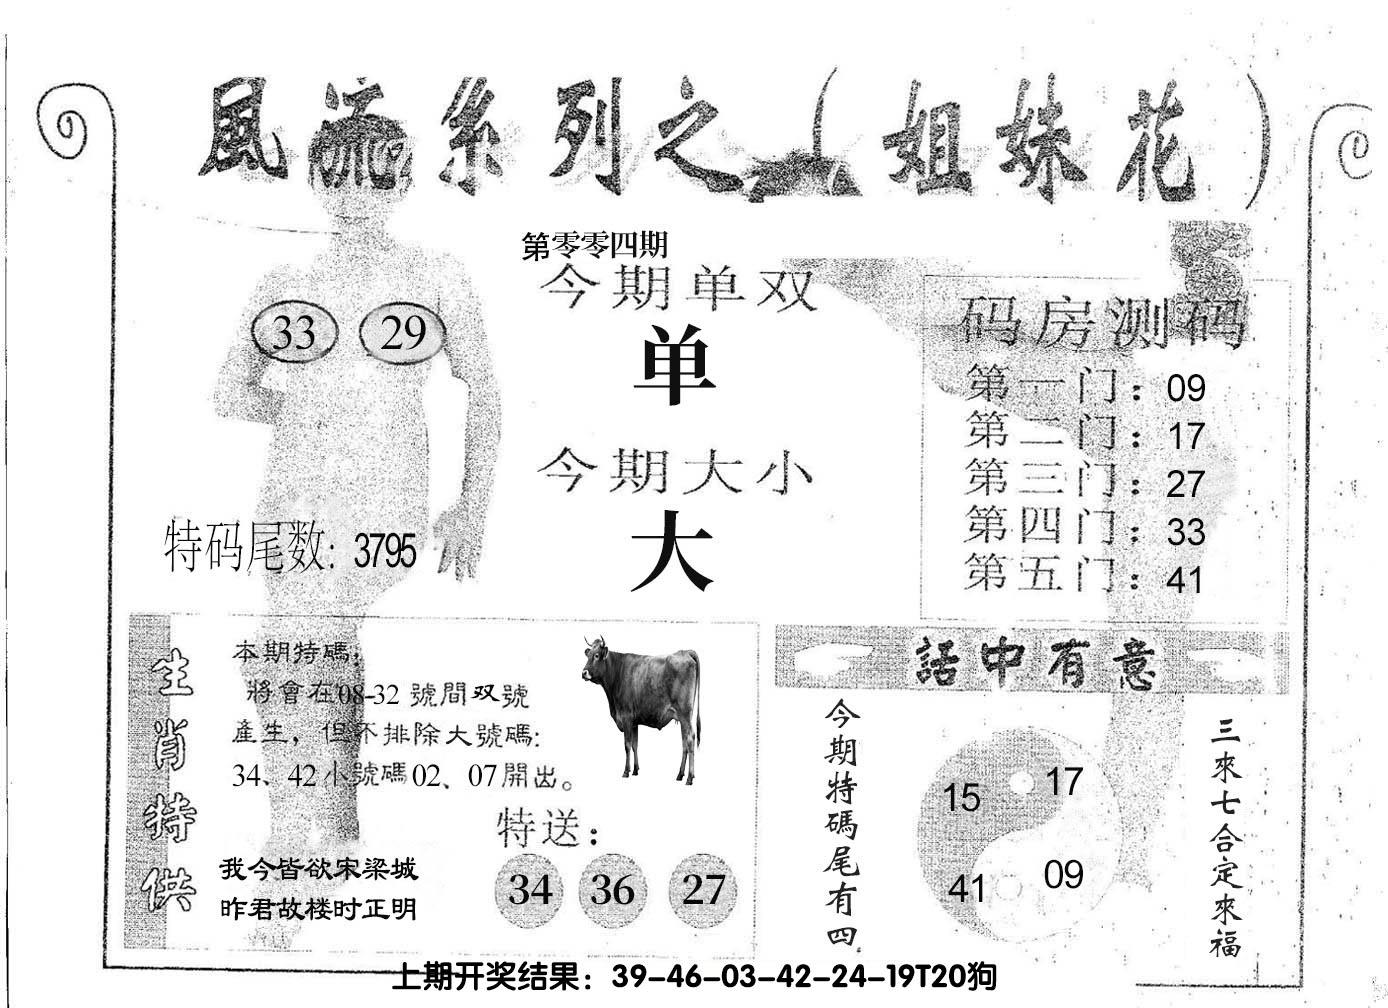 風流系列之(姐妹花)
第零零四期
今期单双
单
今期大小
大
33 29
特码尾数: 3795
码房测码
第一门: 09
第二门: 17
第三门: 27
第四门: 33
第五门: 41
生肖特供
本期特碼,
將會在08-32 號間双號
產生, 但不排除大號碼:
34、42小號碼02、07開出。
特送:
34 36 27
我今皆欲宋梁城
昨君故楼时正明
話中有意
今期特碼尾有四
15 17
41 09
三來七合定來福
上期开奖结果: 39-46-03-42-24-19T20狗